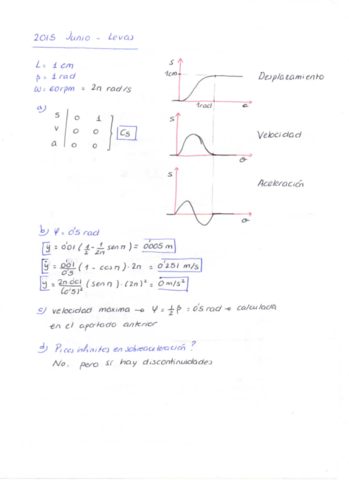 2015 Junio - Levas
L = 1 cm
β = 1 rad
ω = 60 rpm = 2π rad/s
a)
s | 0 1
v | 0 0 } C5
a | 0 0
s
1cm
1rad
θ
Desplazamiento
s
θ
Velocidad
s
θ
Aceleración
b) Ψ = 0'5 rad
y = 0'01 (1/2 - 1/2π sen π) = 0'005 m
ẏ = 0'01/0'5 (1 - cos π) · 2π = 0'251 m/s
ÿ = 2π·0'01/(0'5)² (sen π) · (2π)² = 0 m/s²
c) velocidad máxima → Ψ = 1/2 β = 0'5 rad → calculada
en el apartado anterior
d) Picos infinitos en sobreaceleración?
No, pero sí hay discontinuidades